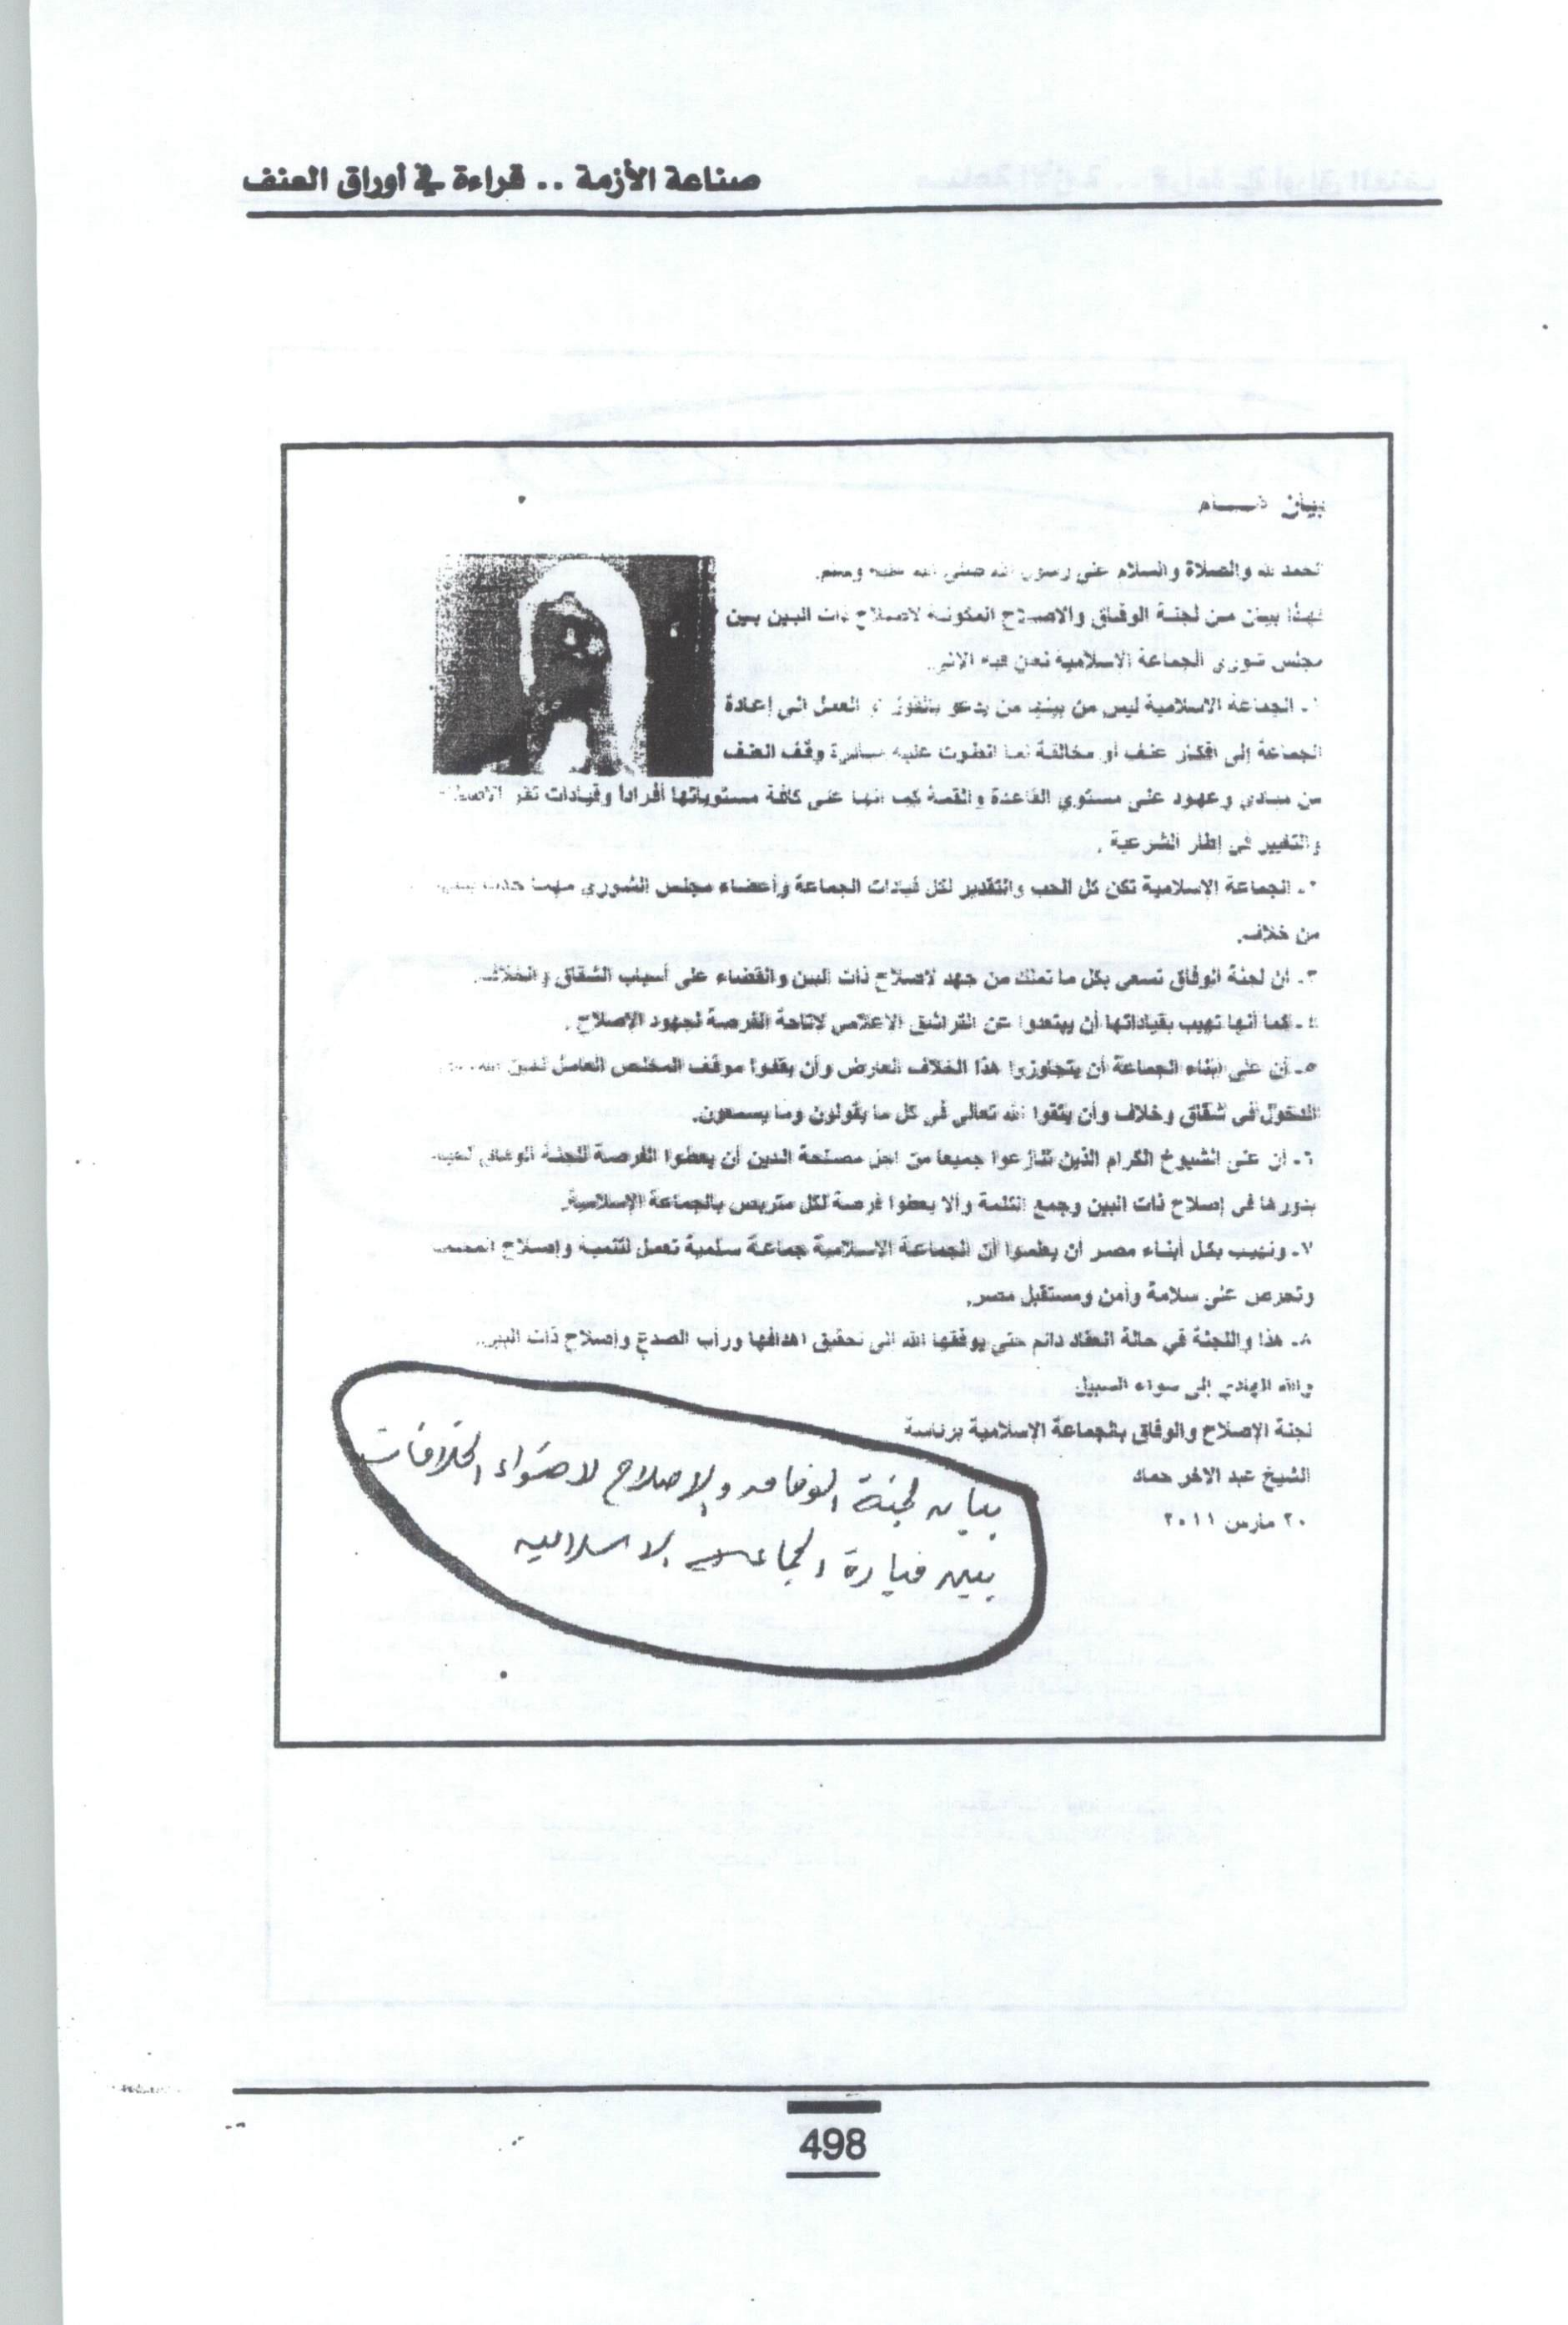 صناعة الأزمة .. قراءة في أوراق العنف
بيان هـــام
الحمد لله والصلاة والسلام على رسول الله صلى الله عليه وسلم.
فهذا بيان من لجنة الوفاق والاصلاح المكونة لاصلاح ذات البين بين
مجلس شورى الجماعة الاسلامية نعلن فيه الاتي.
١ـ الجماعة الاسلامية ليس من بينها من يدعو بالقول او العمل الى إعادة
الجماعة إلى افكار عنف أو مخالفة لما انطوت عليه مبادرة وقف العنف
من مبادئ وعهود على مستوي القاعدة والقمة كما انها على كافة مستوياتها أفراداً وقيادات
والتغيير في إطار الشرعية .
٢ـ الجماعة الإسلامية تكن كل الحب والتقدير لكل قيادات الجماعة وأعضاء مجلس الشورى مهما حدث
من خلاف.
٣ـ أن لجنة الوفاق تسعى بكل ما تملك من جهد لاصلاح ذات البين والقضاء على أسباب الشقاق والخلاف.
٤ـ كما أنها تهيب بقياداتها أن يبتعدوا عن التراشق الاعلامي لاتاحة الفرصة لجهود الإصلاح .
٥ـ أن على أبناء الجماعة أن يتجاوزوا هذا الخلاف العارض وأن يقفوا موقف المخلص العامل لدين الله
الدخول في شقاق وخلاف وأن يتقوا الله تعالى في كل ما يقولون وما يسمعون.
٦ـ أن على الشيوخ الكرام الذين تنازعوا جميعا من اجل مصلحة الدين أن يعطوا الفرصة للجنة الوفاق
بدورها في إصلاح ذات البين وجمع الكلمة وألا يعطوا فرصة لكل متربص بالجماعة الإسلامية.
٧ـ ونهيب بكل أبناء مصر أن يعلموا أن الجماعة الاسلامية جماعة سلمية تعمل لتنمية وإصلاح المجتمع
وتحرص على سلامة وأمن ومستقبل مصر.
٨ـ هذا واللجنة في حالة انعقاد دائم حتى يوفقها الله الى تحقيق اهدافها ورأب الصدع وإصلاح ذات البين.
والله الهادي إلى سواء السبيل
لجنة الإصلاح والوفاق بالجماعة الإسلامية برئاسة
الشيخ عبد الاخر حماد
٢٠ مارس ٢٠١١
بيان لجنة الوفاق والإصلاح لاحتواء الخلافات
بين قيادة الجماعة الاسلامية
498